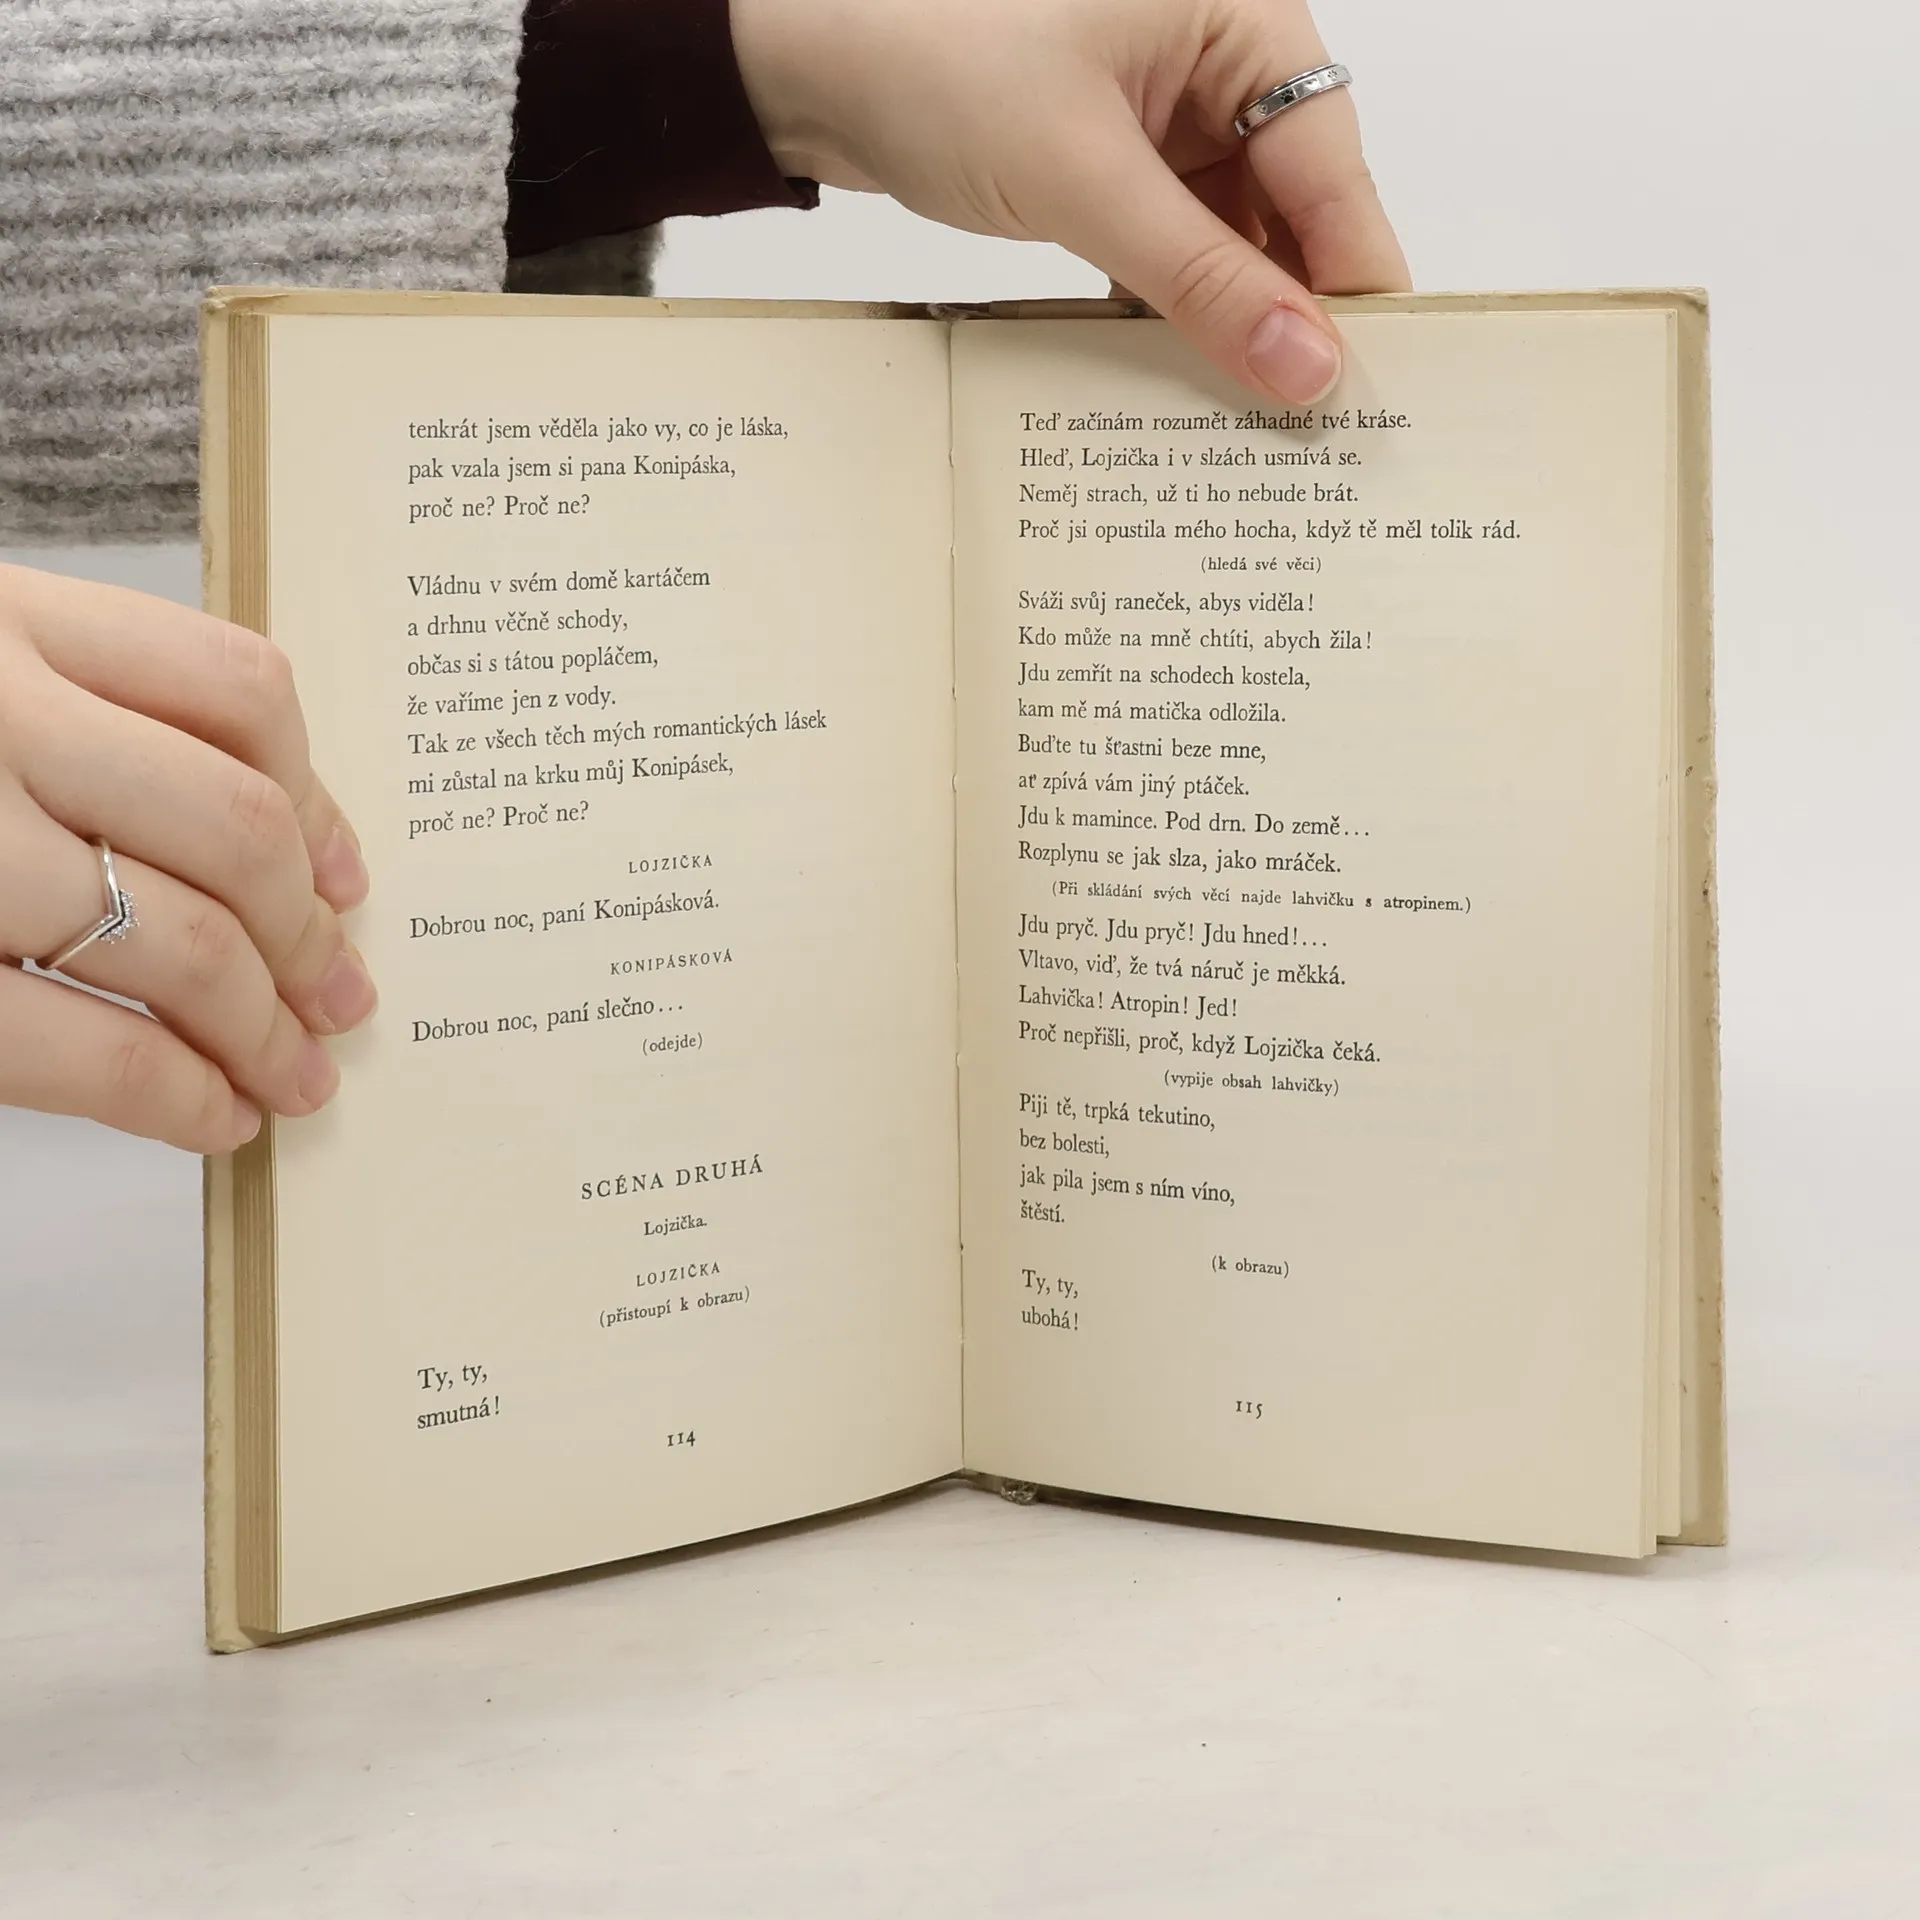 tenkrát jsem věděla jako vy, co je láska,
pak vzala jsem si pana Konipáska,
proč ne? Proč ne?
Vládnu v svém domě kartáčem
a drhnu věčně schody,
občas si s tátou popláčem,
že vaříme jen z vody.
Tak ze všech těch mých romantických lásek
mi zůstal na krku můj Konipásek,
proč ne? Proč ne?
LOJZIČKA
Dobrou noc, paní Konipásková.
KONIPÁSKOVÁ
Dobrou noc, paní slečno...
(odejde)
SCÉNA DRUHÁ
Lojzička.
LOJZIČKA
(přistoupí k obrazu)
Ty, ty,
smutná!
114
Teď začínám rozumět záhadné tvé kráse.
Hleď, Lojzička i v slzách usmívá se.
Neměj strach, už ti ho nebude brát.
Proč jsi opustila mého hocha, když tě měl tolik rád.
(hledá své věci)
Sváži svůj raneček, abys viděla!
Kdo může na mně chtíti, abych žila!
Jdu zemřít na schodech kostela,
kam mě má matička odložila.
Buďte tu šťastni beze mne,
ať zpívá vám jiný ptáček.
Jdu k mamince. Pod drn. Do země...
Rozplynu se jak slza, jako mráček.
(Při skládání svých věcí najde lahvičku s atropinem.)
Jdu pryč. Jdu pryč! Jdu hned!...
Vltavo, viď, že tvá náruč je měkká.
Lahvička! Atropin! Jed!
Proč nepřišli, proč, když Lojzička čeká.
(vypije obsah lahvičky)
Piji tě, trpká tekutino,
bez bolesti,
jak pila jsem s ním víno,
štěstí.
(k obrazu)
Ty, ty,
ubohá!
115